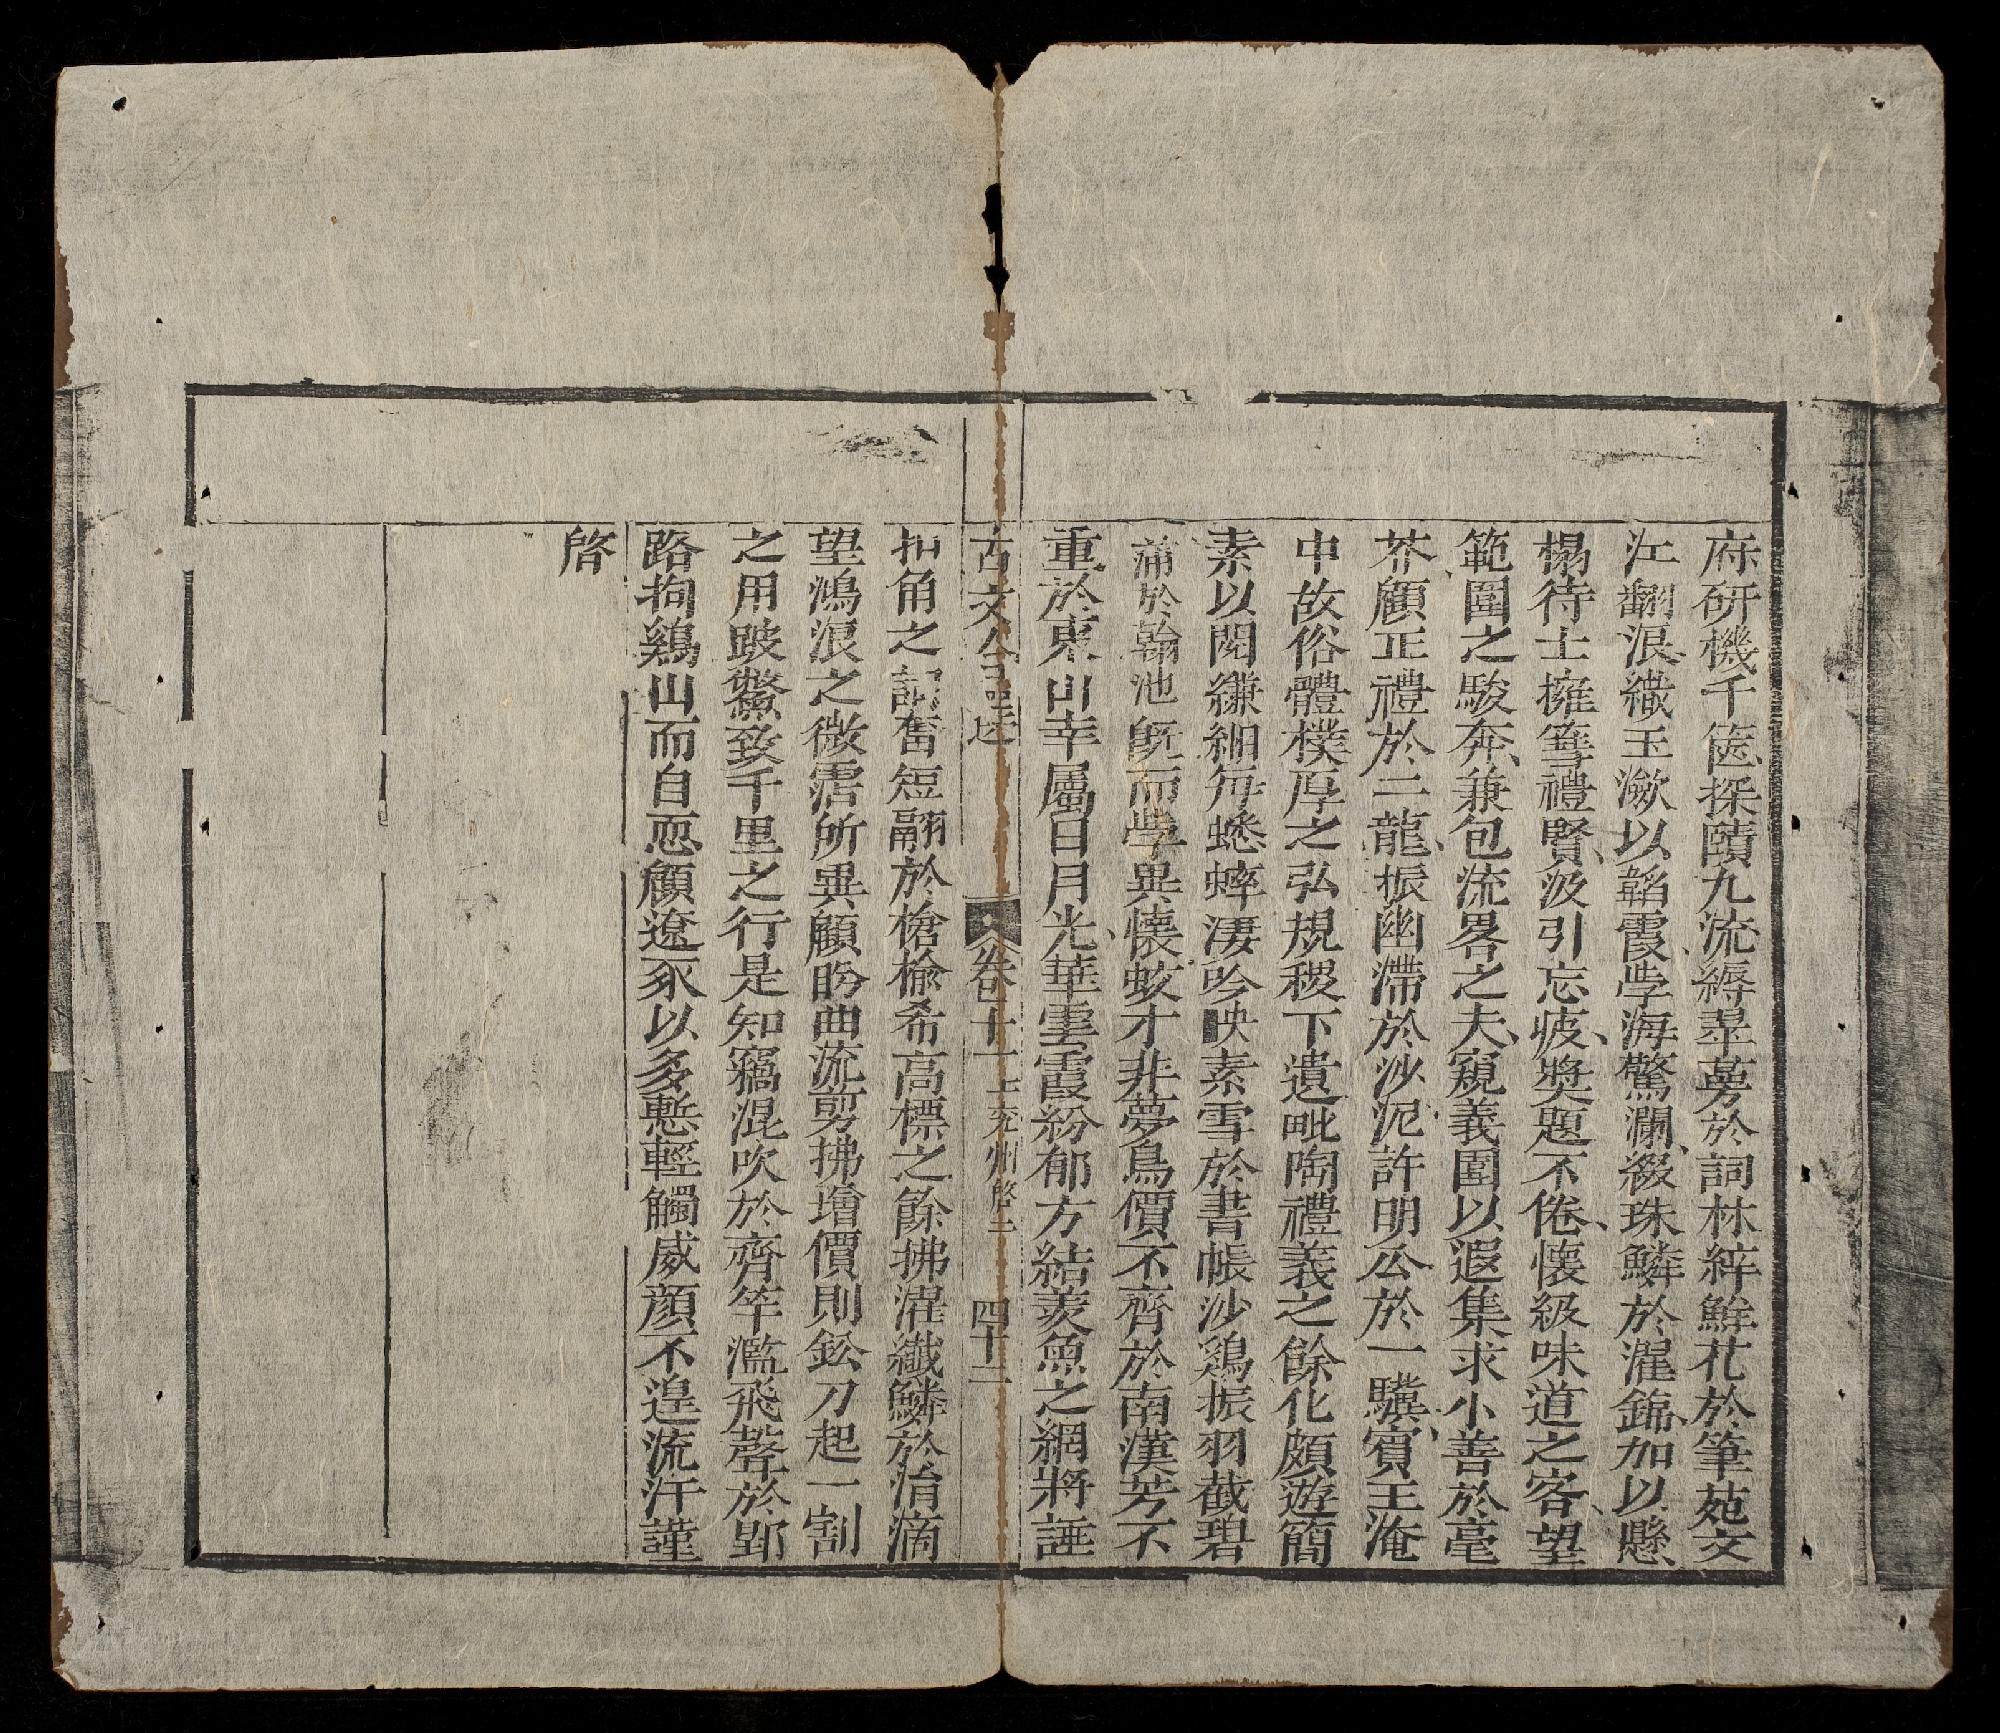 府研機千篋探賾九流縟翠萼於詞林綷鮮花於筆苑文
江翻浪織玉漪以韜霞學海驚瀾綴珠鱗於濯錦加以懸
榻待士擁篲禮賢汲引忘疲奬題不倦懷級味道之客望
範圍之駿奔兼包流畧之夫窺義圍以遐集求小善於毫
芥顧正禮於二龍振幽滯於沙泥許明公於一驥賓王淹
中故俗體樸厚之弘規稷下遺甿陶禮義之餘化頗遊簡
素以閱縑緗每蟋蟀淒吟映素雪於書帳沙鷄振羽截碧
蒲於翰池旣而學異懷蛟才非夢鳥價不齊於南漢芳不
重於東山幸屬日月光華雲霞紛郁方結羨魚之網將誣
古文 卷十一 上兗州啓二 四十二
扣角之謌奮短翮於槍楡希高標之餘拂濯纖鱗於涓滴
望鴻浪之微霑所異顧盼曲流剪拂增價則鈆刀起一割
之用跛鱉致千里之行是知竊混吹於齊竽濫飛聲於郢
路拘鷄山而自恧顧遼豕以多慙輕觸威顔不遑流汗謹
啓